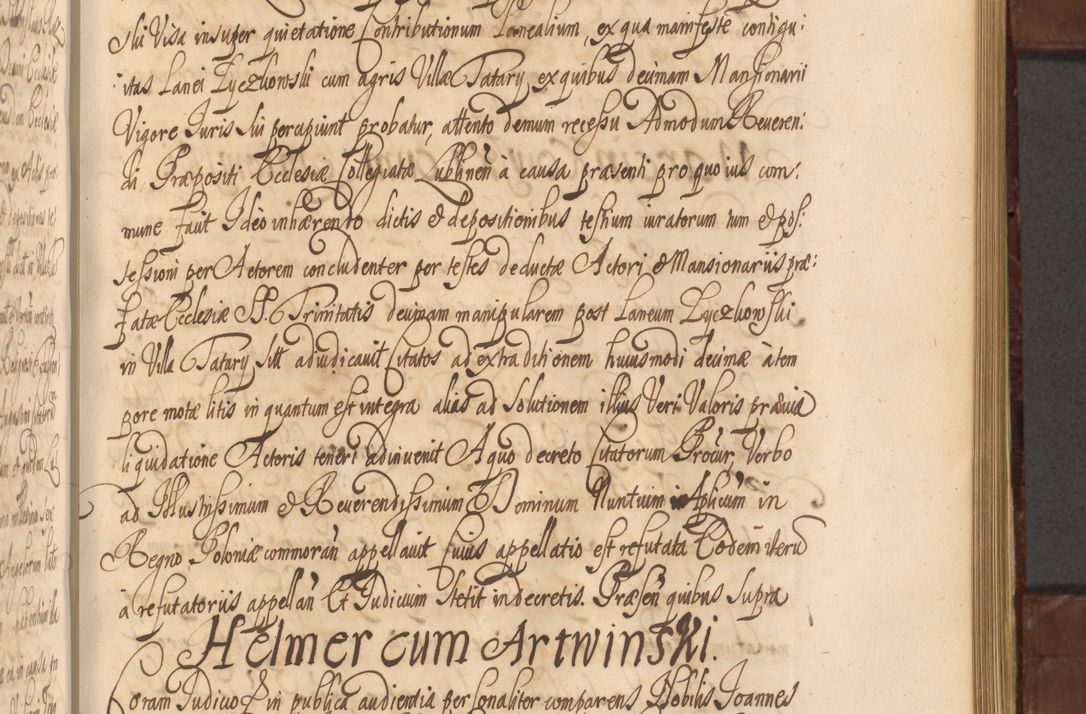 ski Visa insuper quietatione Contributionum Lanealium, ex qua manifeste contigu:
itas Lanei Zyczkowski cum agris Villæ Tatary, ex quibus decimam Mansionarii
Vigore Iuris sui percipiunt probatur, attento demum recessu Admodum Reueren:
di Præpositi Ecclesiæ Collegiatæ Lublinen̄ à causa præsenti pro quo ius com:
mune facit Ideo inhærendo dictis & depositionibus testium iuratorum num & pos:
sessioni per Actorem concludenter per testes deductæ Actori & Mansionariis præ:
fatæ Ecclesiæ SS. Trinitatis decimam manipularem post Laneum Zyczkowski
in Villa Tatary sitt adiudicauit Citatos ad extraditionem huiusmodi decimæ à tem
pore motæ litis in quantum est integra alias ad solutionem illius Veri Valoris præuia
liquidatione Actoris teneri adinuenit A quo decreto Citatorum Procur, Verbo
ad Illustrissimum & Reuerendissimum D Dominum Nuntium Aplicum in
Regno Poloniæ commoran̄ appellauit cuius appellatio est refutata Eodem iterū
à refutatoriis appellan̄ Et Iudicium stetit in decretis. Præsen̄ quibus supra
Helmer cum Artwinski.
Coram Iudicio & in publica audientia personaliter comparens Nobilis Ioannes